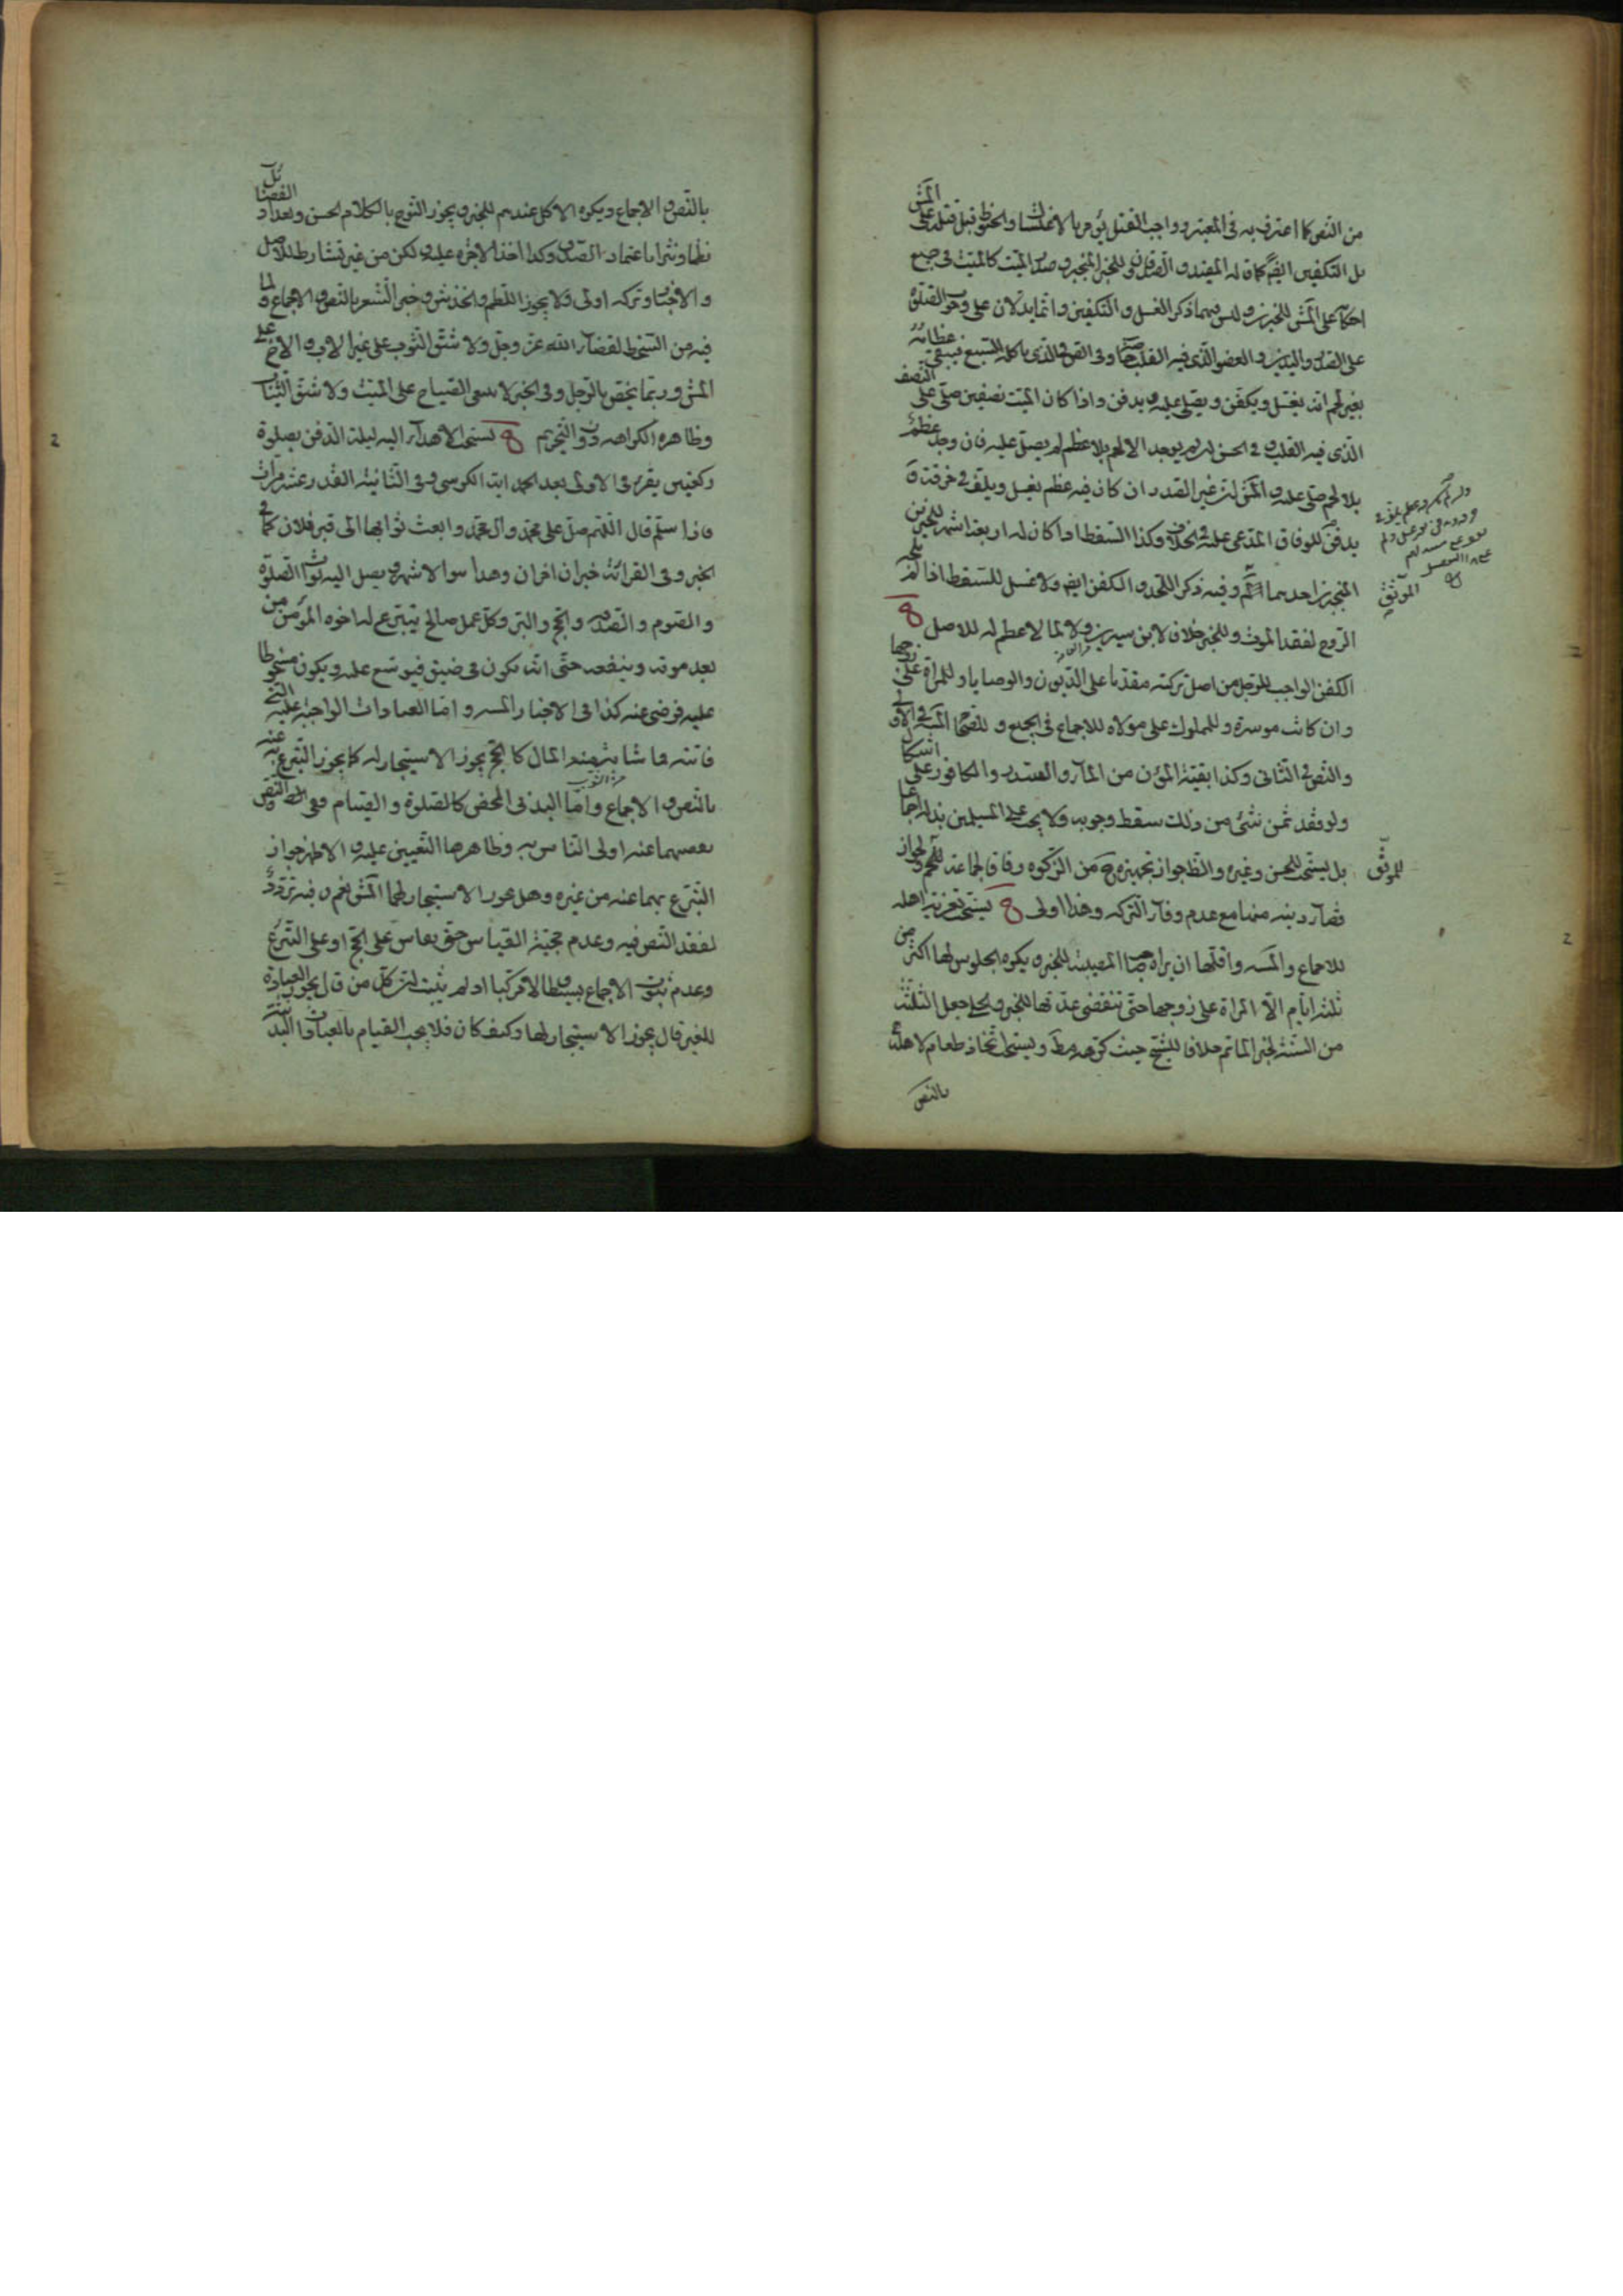 من النص كما اعترف به في المعتبر وواجب القتل يؤمر بالاغتسال والحنوط قبل قتله على المش
بل التكفين ايضا كما قاله المفيد والصدوقان للخبر المنجبر وصدر الميت كالميت في جميع
احكامه على المش للخبرين وليس فيهما ذكر الغسل والتكفين وانما يدلان على وجوب الصلوة
على الصدر واليدين والعضو الذي فيه القلب وفي الص الذي ياكله السبع فيبقى عظامه
بغير لحم انه يغسل ويكفن ويصلى عليه ويدفن واذا كان الميت نصفين صلى على النصف
الذي فيه القلب وفي الحسن لو لم يوجد الا لحم بلا عظم لم يصل عليه فان وجد عظم
بلا لحم صلى عليه والمش ان غير الصدر ان كان فيه عظم يغسل ويلف في خرقة و
يدفن للوفاق المدعى عليه في الخلاف وكذا السقط اذا كان له اربعة اشهر للخبرين
المنجبرين احدهما وفيه ذكر اللحد والكفن ايضا ولا غسل للسقط اذا لم تلجه
الروح لفقد الموت وللخبر خلافا لابن سيرين ولا لما لا عظم له للاصل
الكفن الواجب للرجل من اصل تركته مقدما على الديون والوصايا وللمراة على زوجها
وان كانت موسرة وللمملوك على مولاه للاجماع في الجميع وللصحاح المستفيضة في الاول
والنص في الثاني وكذا بقية المؤن من الماء والسدر والكافور على اشكال
ولو فقد ثمن شيء من ذلك سقط وجوبه ولا يجب على المسلمين بذله اجماعا
بل يستحب للحسن وغيره والظ جواز تجهيزه من الزكوة وفاقا لجماعة للموثق
قضاء دينه منها مع عدم وفاء التركة وهذا اولى يستحب تعزية اهله
للاجماع واقلها ان يراه صاحب المصيبة للخبر ويكره الجلوس لها اكثر من
ثلثة ايام الا المراة على زوجها حتى تنقضي عدتها للخبر والحلي جعل الثلثة
من السنة لخبر الماتم خلافا للشيخ حيث كرهه مط ويستحب اتخاذ طعام لاهله
بالنص
بالنص والاجماع ويكره الاكل عندهم للخبر ويجوز النوح بالكلام الحسن وتعداد الفضائل
نظما ونثرا باعتماد الصدق وكذا اخذ الاجرة عليه لكن من غير تشارط للاصل
والاخبار وتركه اولى ولا يجوز اللطم والخدش وجز الشعر بالنص والاجماع ولما
فيه من التسخط لقضاء الله عز وجل ولا شق الثوب على غير الاب والاخ على
المش وربما يخص بالرجل وفي الخبر لا ينبغي الصياح على الميت ولا شق الثياب
وظاهره الكراهة دون التحريم يستحب الاهداء اليه ليلة الدفن بصلوة
ركعتين يقرء في الاولى بعد الحمد اية الكرسي وفي الثانية القدر عشر مرات
فاذا سلم قال اللهم صل على محمد وال محمد وابعث ثوابها الى قبر فلان كما في
الخبر وفي القرائة خبران اخران وهذا سوا لا شهر ويصل اليه ثواب الصلوة
والصوم والصدقة والحج والبر وكل عمل صالح يتبرع له اخوه المؤمن من
بعد موته وينفعه حتى انه يكون في ضيق فيوسع عليه ويكون مسخوطا
عليه فرضى عنه كذا في الاخبار واما العبادات الواجبة عليه التي
فاتته فما شابه منها المال كالحج يجوز الاستيجار له كما يجوز التبرع به عنه
بالنص والاجماع واما البدني المحض كالصلوة والصيام ففي النص
يقضيهما عنه اولى الناس به وظاهرها التعيين عليه والاظهر جواز
التبرع بهما عنه من غيره وهل يجوز الاستيجار لهما المش نعم وفيه تردد
لفقد النص فيه وعدم حجية القياس حتى يقاس على الحج او على التبرع
وعدم ثبوت الاجماع بسيطا ولا مركبا اذ لم يثبت ان كل من قال بجواز العبادة
للغير قال بجواز الاستيجار لها وكيف كان فلا يجب القيام بالعبادات البدنية